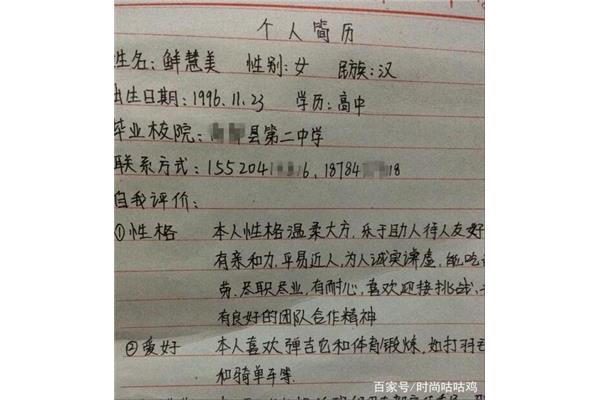 个人简历
姓名：鲜慧美 性别：女 民族：汉
出生日期：1996.11.23 学历：高中
毕业校院：县第二中学
联系方式：15520416，1878418
自我评价：
①性格 本人性格温柔大方，乐于助人待人友好
有亲和力，平易近人，为人诚实谦虚，能吃
劳、尽职尽业，有耐心，喜欢迎接挑战，
有良好的团队合作精神
②爱好 本人喜欢弹吉它和体育锻炼，如打羽
和骑单车等.
百家号/时尚咕咕鸡